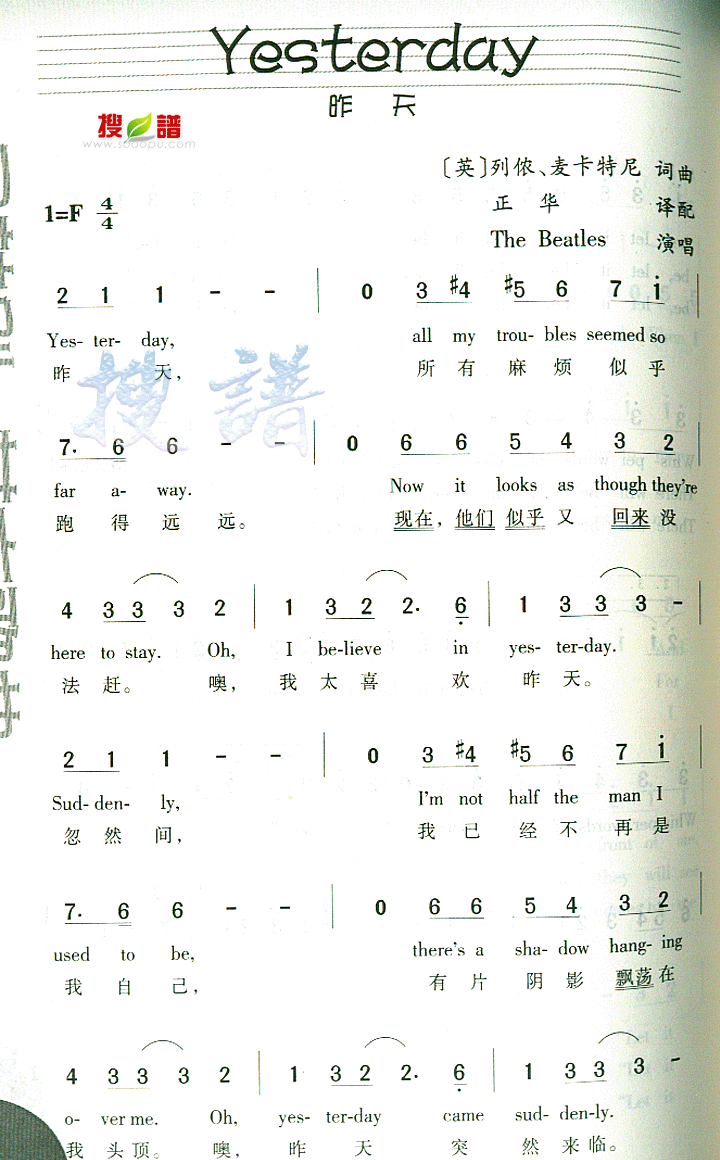 Yesterday
昨天
搜谱
www.sooopu.com
[英]列侬、麦卡特尼 词曲
1=F 4/4
正华 译配
The Beatles 演唱
2 1 1 - - | 0 3 #4 #5 6 7 i
Yes- ter- day, all my trou- bles seemed so
昨 天, 所 有 麻 烦 似 乎
搜譜
7. 6 6 - - | 0 6 6 5 4 3 2
far a- way. Now it looks as though they're
跑 得 远 远。 现在, 他们 似乎 又 回来 没
4 3 3 3 2 | 1 3 2 2. 6 | 1 3 3 3 -
here to stay. Oh, I be-lieve in yes- ter-day.
法 赶。 噢, 我 太 喜 欢 昨 天。
2 1 1 - - | 0 3 #4 #5 6 7 i
Sud- den- ly, I'm not half the man I
忽 然 间, 我 已 经 不 再 是
7. 6 6 - - | 0 6 6 5 4 3 2
used to be, there's a sha- dow hang- ing
我 自 己, 有 片 阴 影 飘荡 在
4 3 3 3 2 | 1 3 2 2. 6 | 1 3 3 3 -
o- ver me. Oh, yes- ter-day came sud- den-ly.
我 头 顶。 噢, 昨 天 突 然 来 临。